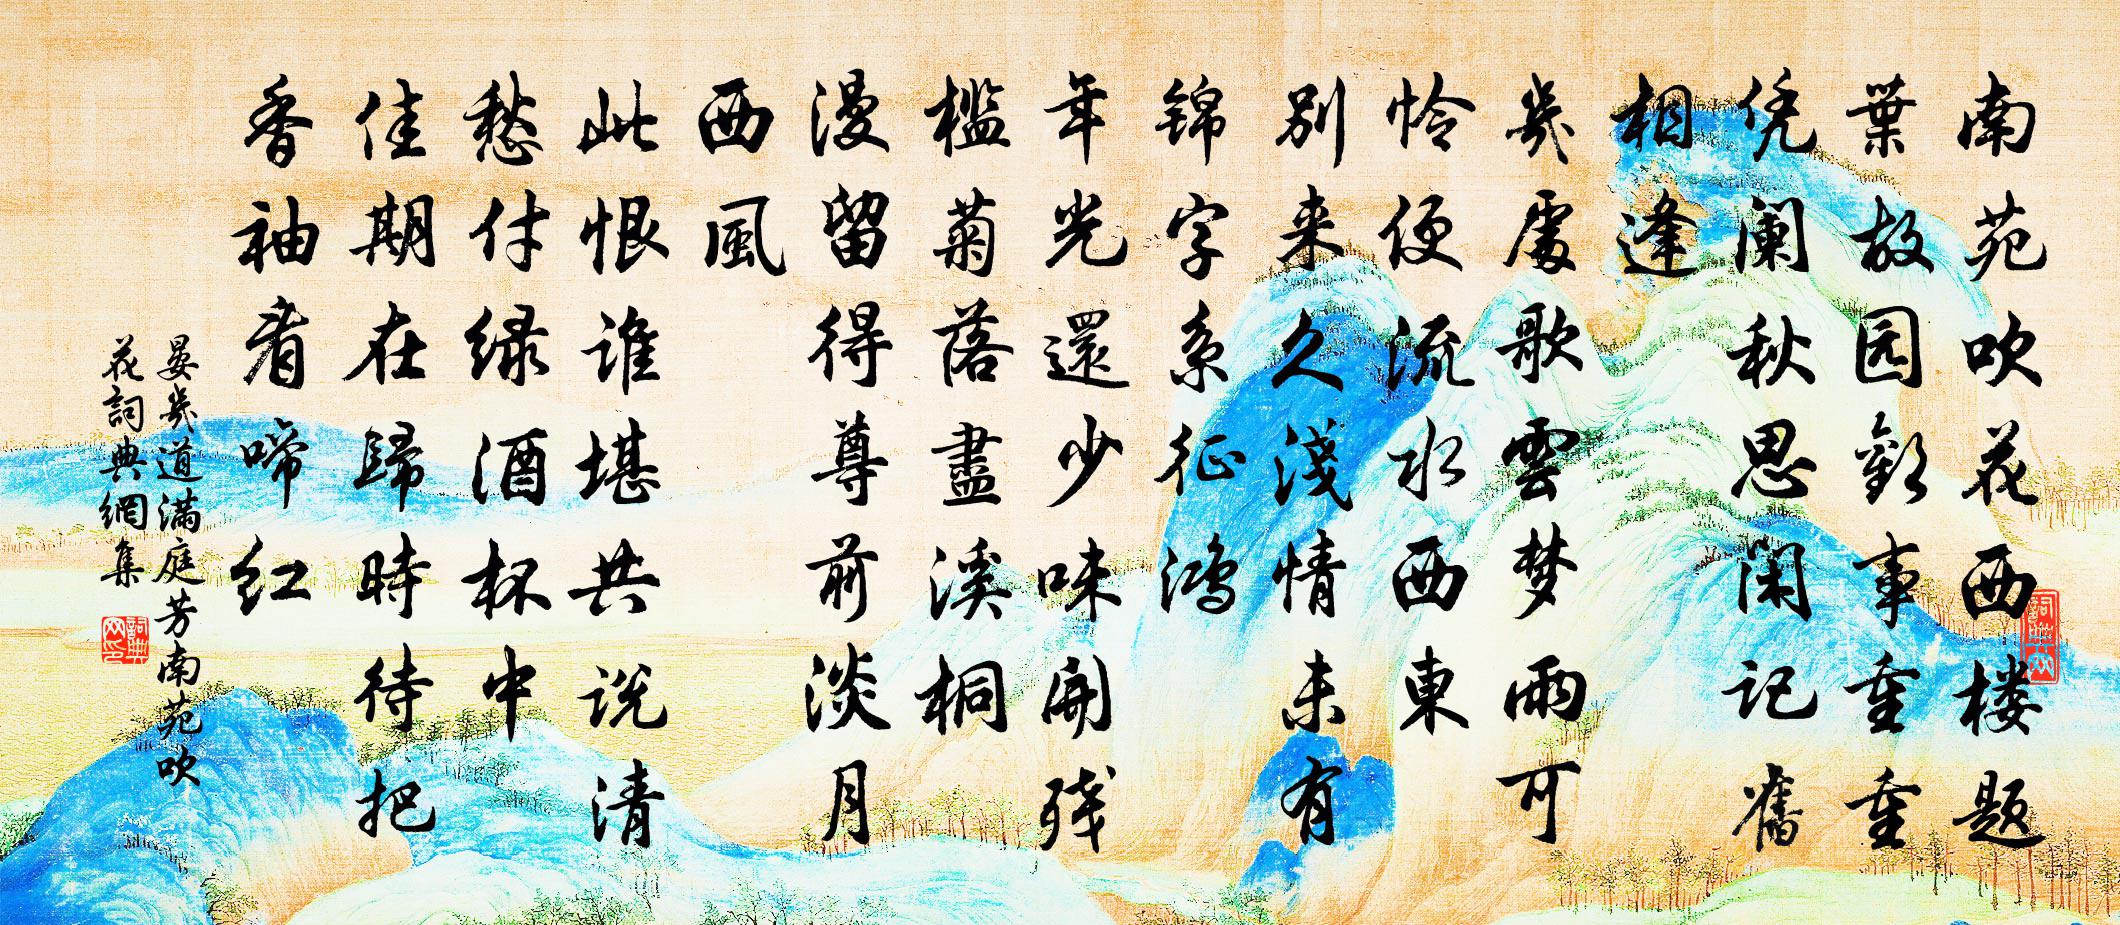 南苑吹花西楼题
葉故园歡事重重
凭阑秋思闲记舊
相逢
幾處歌雲梦雨可
怜便流水西東
别来久淺情未有
锦字系征鸿
年光還少味開残
槛菊落盡溪桐
漫留得尊前淡月
西風
此恨谁堪共说清
愁付绿酒杯中
佳期在歸時待把
香袖看啼红
晏幾道满庭芳南苑吹
花詞典網集
詞典网